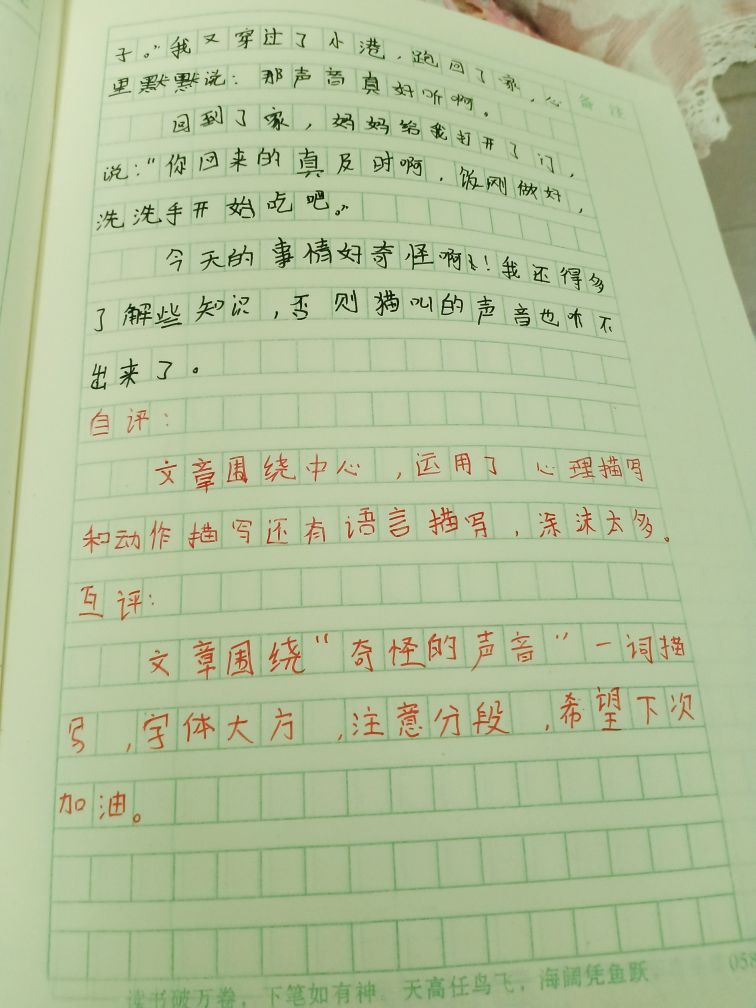 子。”我又穿过了小港，跑回了家，心
里默默说：那声音真好听啊。
备注
回到了家，妈妈给我打开了门，
说：“你回来的真及时啊，饭刚做好，
洗洗手开始吃吧。”
今天的事情好奇怪啊！我还得多
了解些知识，否则猫叫的声音也听不
出来了。
自评：
文章围绕中心，运用了心理描写
和动作描写还有语言描写，涂沫太多。
互评：
文章围绕“奇怪的声音”一词描
写，字体大方，注意分段，希望下次
加油。
读书破万卷，下笔如有神。天高任鸟飞，海阔凭鱼跃
058